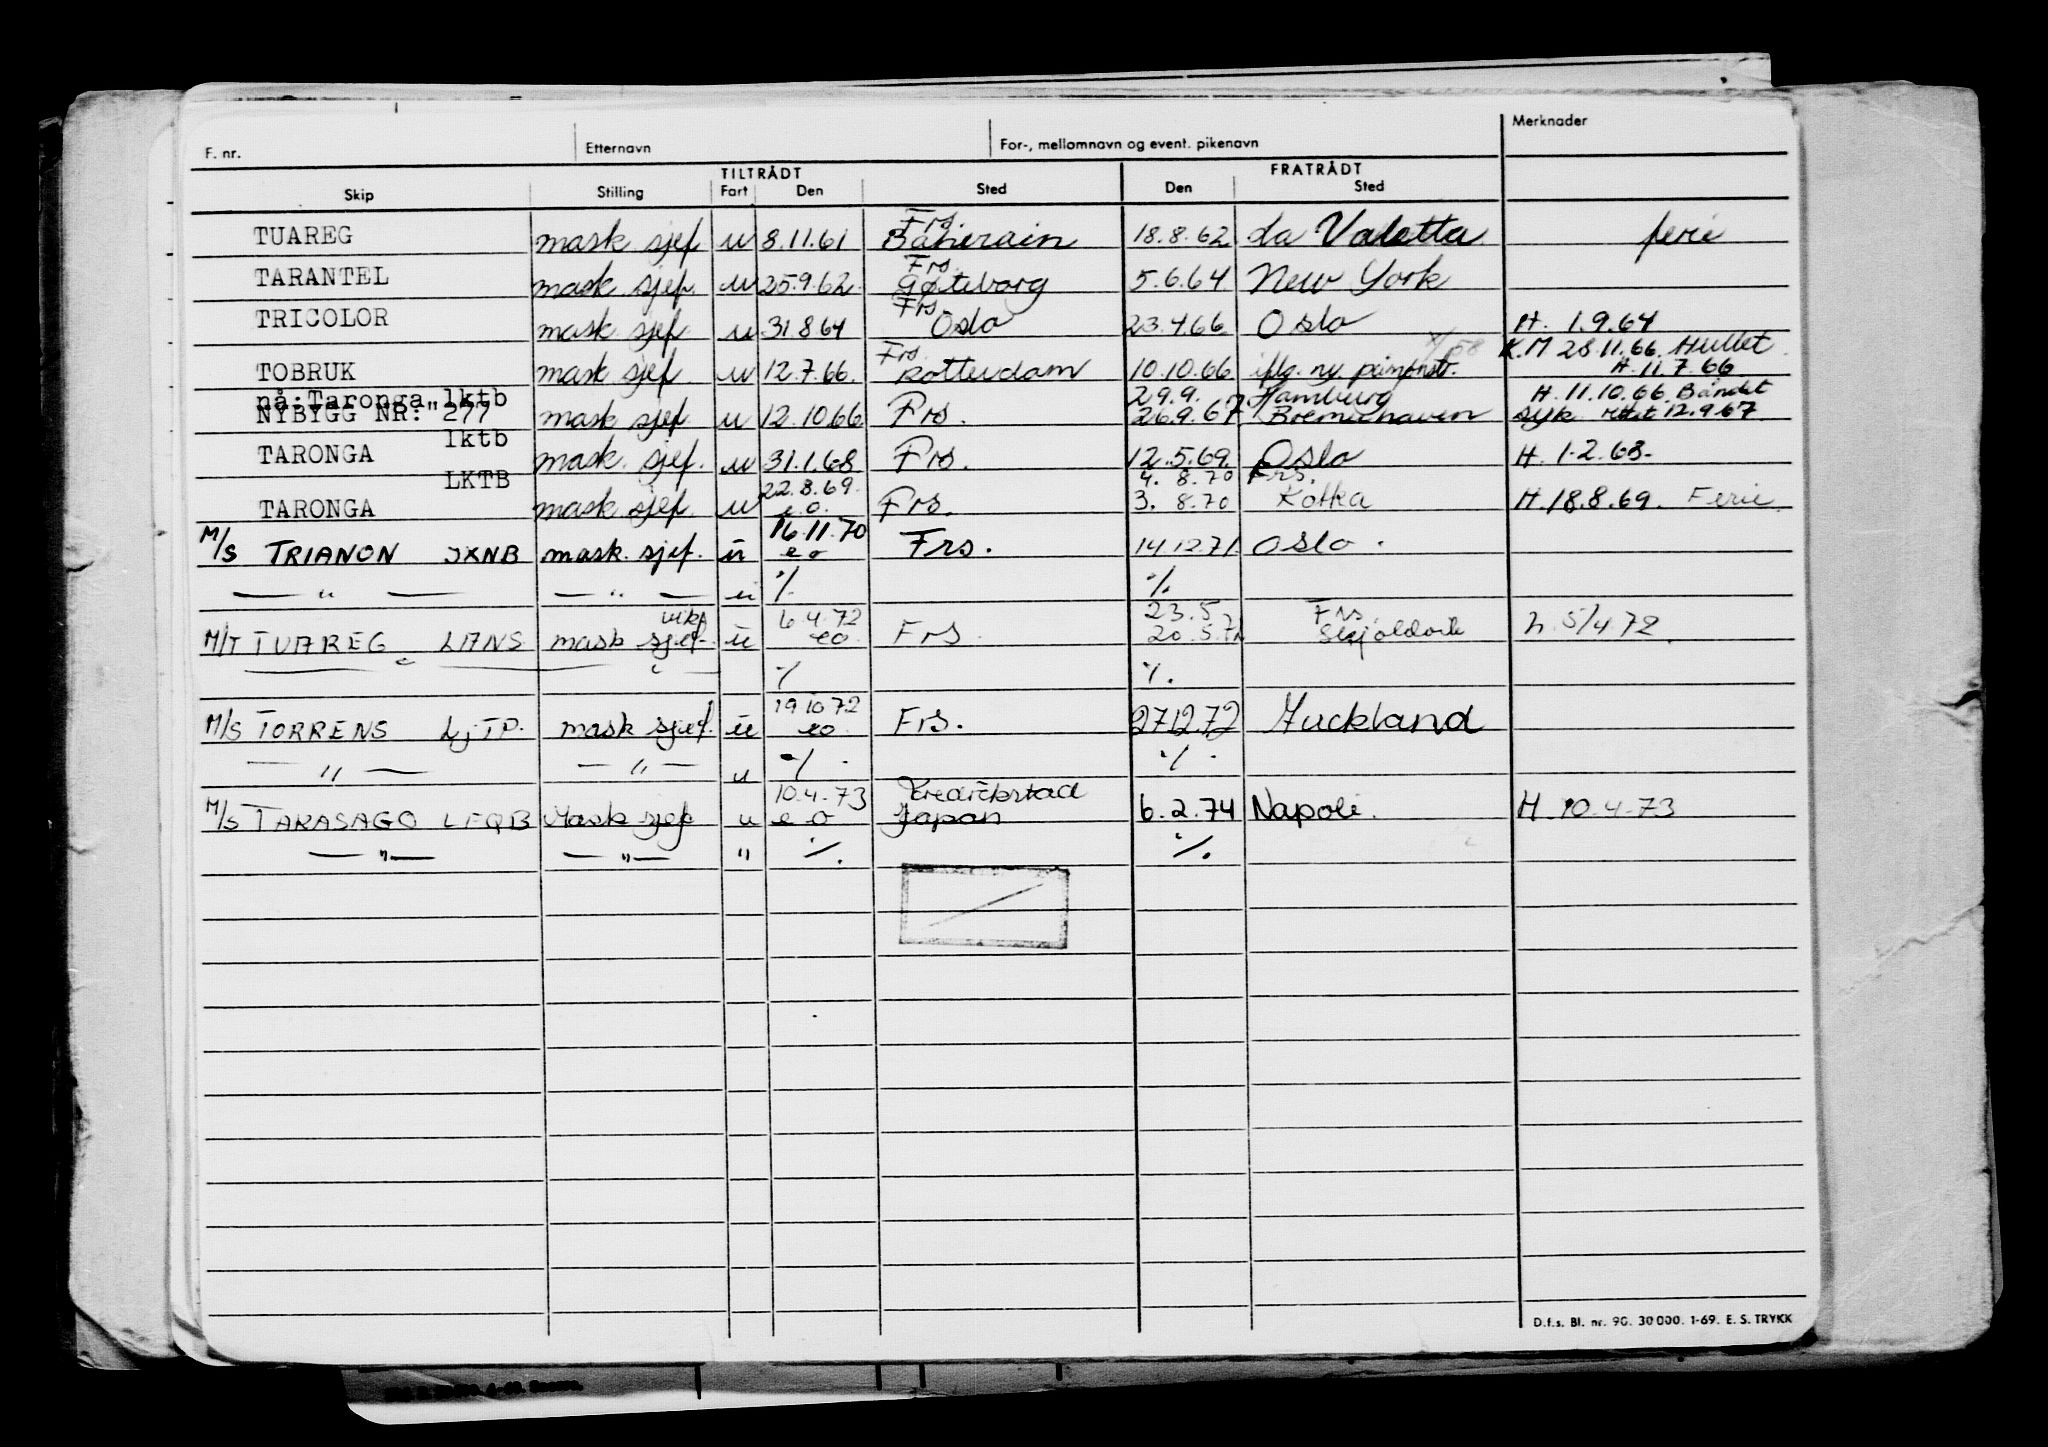 F. nr. Etternavn For-, mellomnavn og event. pikenavn Merknader
TILTRÅDT FRATRÅDT
Skip Stilling Fart Den Sted Den Sted
TUAREG mask sjef u 8.11.61 Frs. Bahierain 18.8.62 La Valetta ferie
TARANTEL mask sjef. u 25.9.62. Frs. Gøteborg 5.6.64 New York
TRICOLOR mask sjef u 31.8.64 Frs Oslo 23.4.66. Oslo H. 1.9.64
K.M 28.11.66. Hullet
TOBRUK mask sjef. u 12.7.66. Frs. Rotterdam 10.10.66 iflg. ny påmønstr. H. 11.7.66
nå:Taronga lktb 29.9. Hamburg H. 11.10.66. Båndet
NYBYGG NR:"277 mask sjef u 12.10.66 Frs. 26.9.67 Bremerhaven syk 12.9.67.
lktb
TARONGA mask. sjef. u 31.1.68 Frs. 12.5.69. Oslo H. 1.2.68.
LKTB 22.8.69. 4. 8.70 Frs.
TARONGA mask sjef. u e.o. Frs. 3. 8.70 Kotka H.18.8.69. Ferie.
16.11.70
M/S TRIANON JXNB mask. sjef. u e o Frs. 14.12.71. Oslo.
— " — — " — u %. %.
vikr 6.4.72 23.5 Frs.
M/T TUAREG LANS mask sjef. u eo Frs. 20.5.72 Skjoldvik h. 5/4.72.
% %.
19.10.72
M/S TORRENS LjTP. mask sjef. u eo Frs. 27.12.72 Auckland
— " — — " — u % . % .
10.4.73 Fredrikstad
M/S TARASAGO LFQB Mask sjef u e o Japan 6.2.74 Napoli. H. 10.4.73
— " — — " — " %. %.
D.f.s. Bl. nr. 90. 30 000. 1-69. E. S. TRYKK